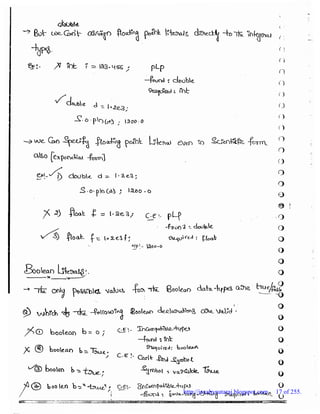 double
→ But we can't assign floating point literals directly to the integral
types.
Eg:- X int i = 123.456 ; PLP
found : double
required : int
✓ double d = 1.2e3;
S.o.pln(d) ; 1200.0
→ we can specify floating point literal even in scientific form
also [exponential form]
eg:- ✓ 1) double d = 1.2e3;
S.o.pln(d) ; 1200.0
X 2) float f = 1.2e3; C.E:- PLP
found : double
✓ 3) float f = 1.2e3f; required : float
1200.0
Boolean Literals:-
→ The only possible values for the Boolean data-types are true/false
② which of the following Boolean declarations are valid.
X ① boolean b = 0 ; C.E:- Incompatible types
found : int
required : boolean
X ② boolean b = True; C.E:- can't find symbol
✓③ boolean b = true; symbol : variable True
X ④ boolean b = "true"; C.E:- Incompatible types
17 of 255.